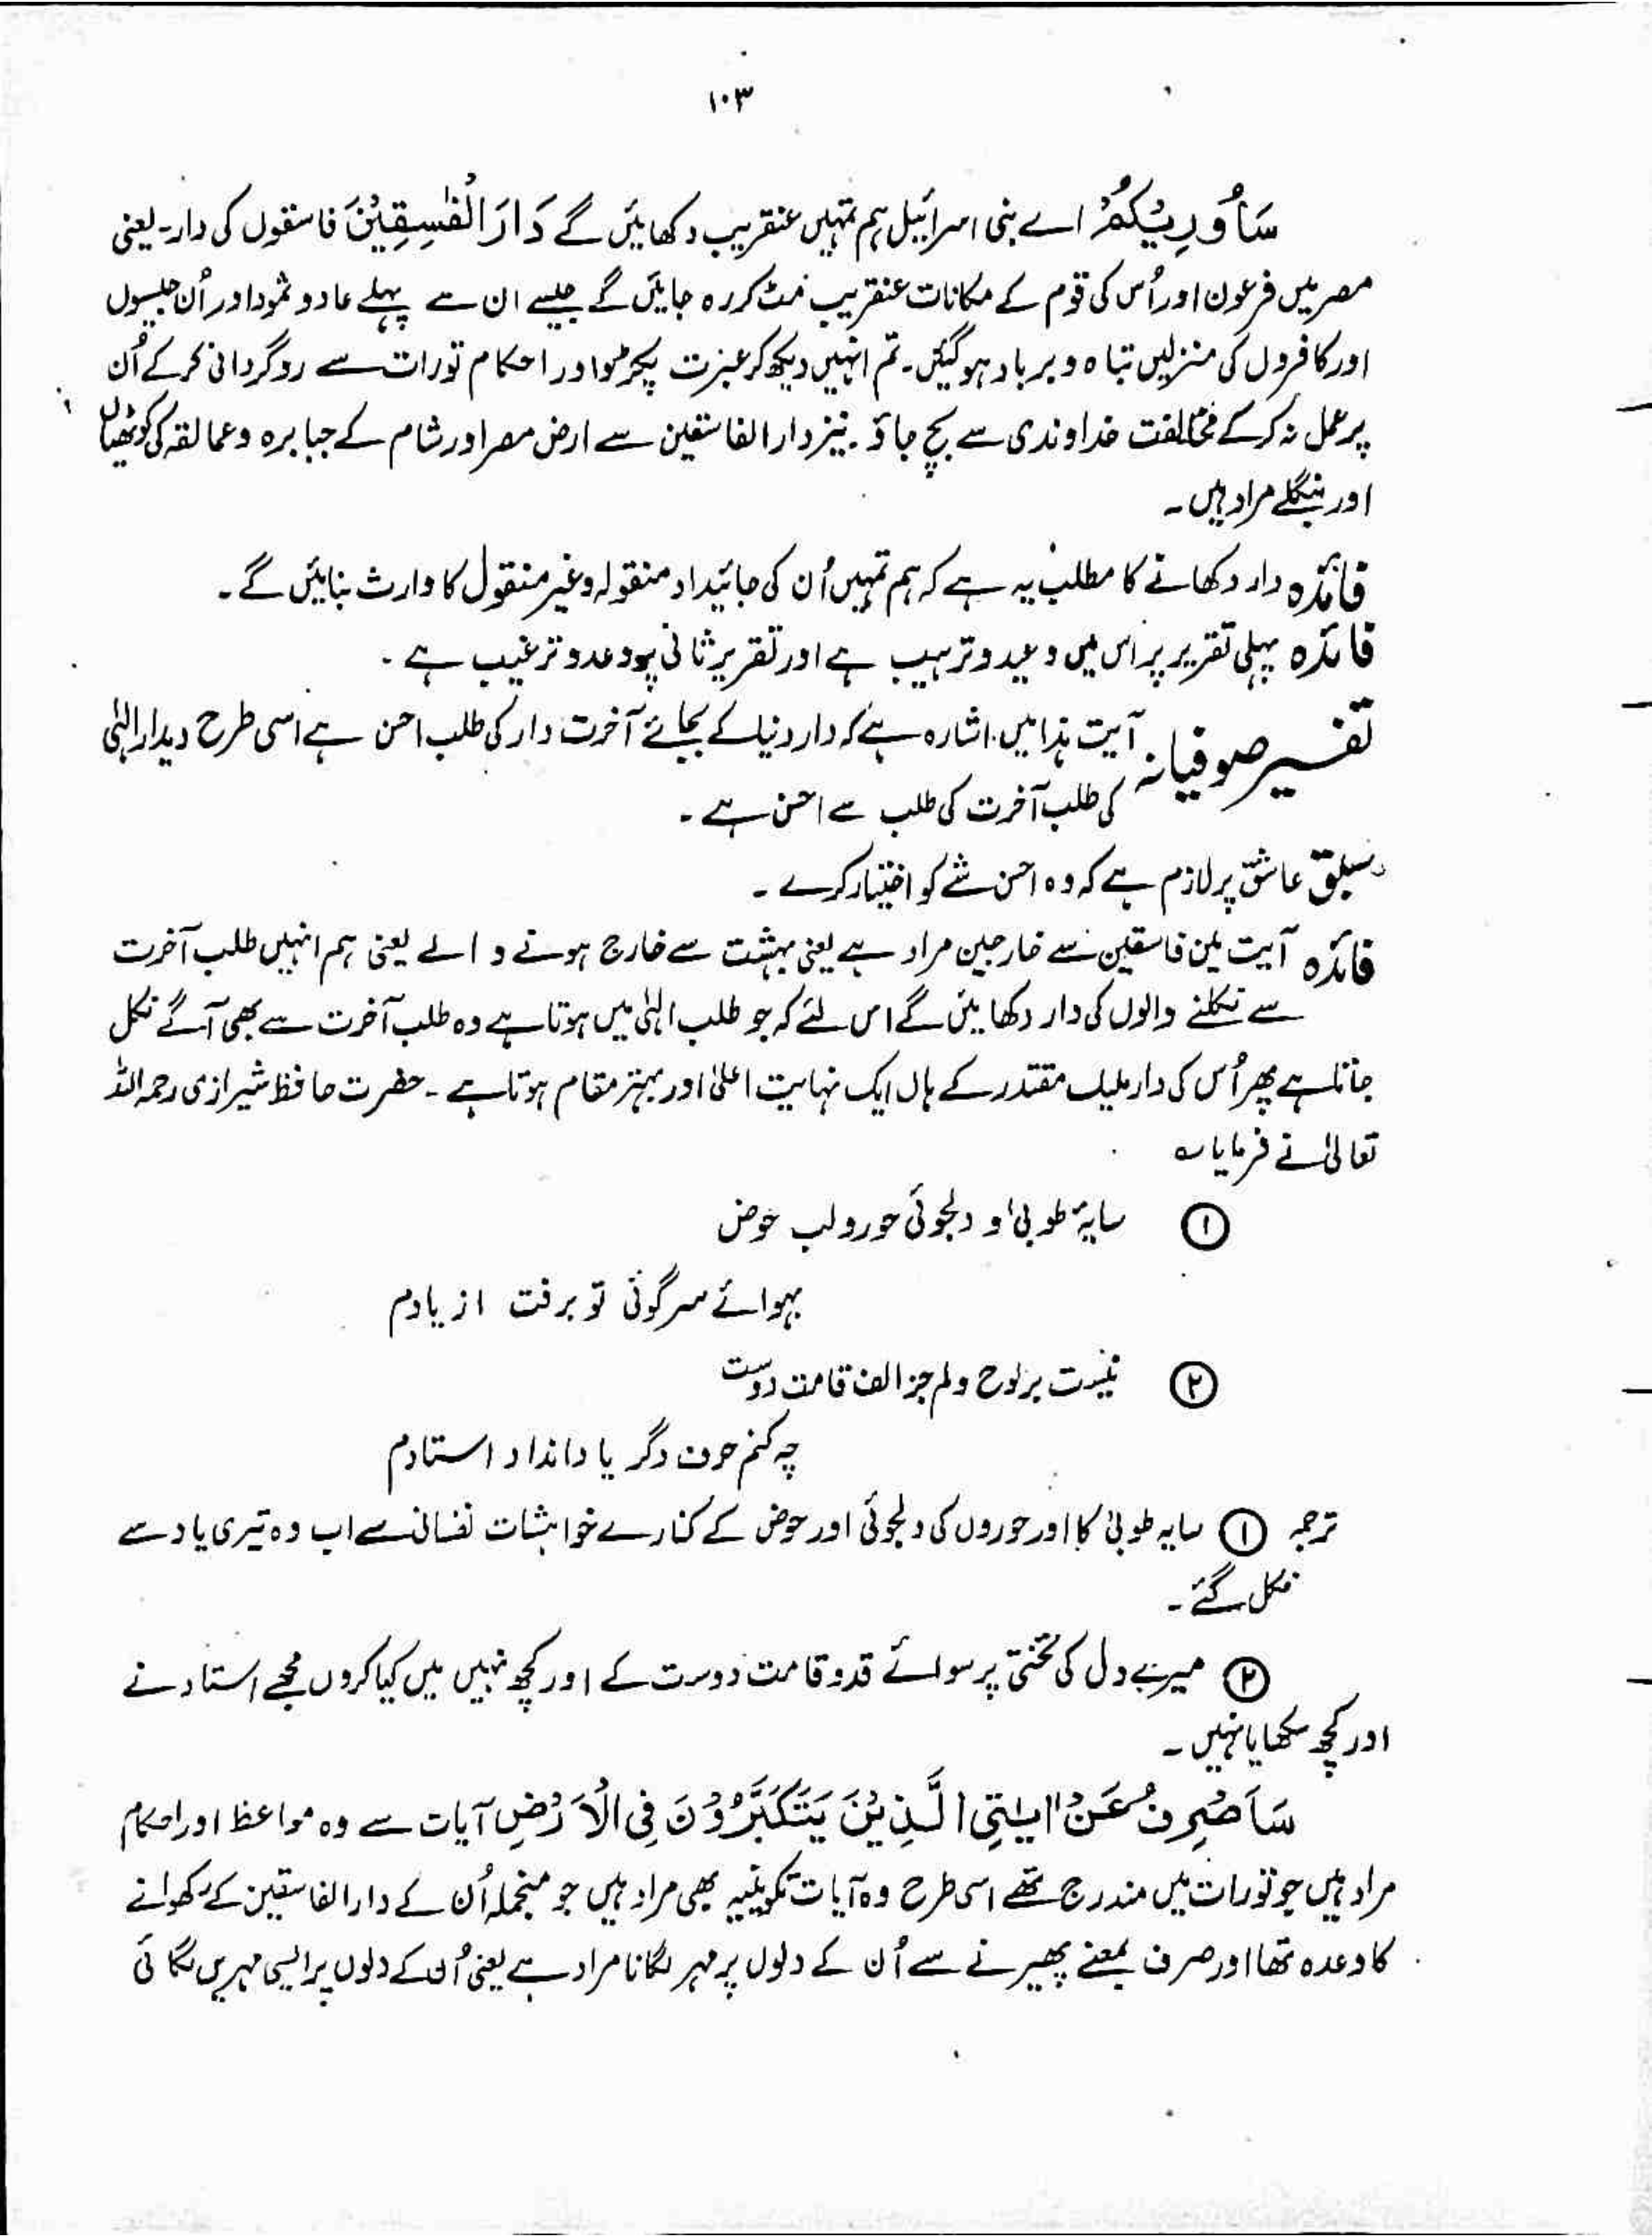 ۱۰۳
سَاُورِیْکُمْ اے بنی اسرائیل ہم تمہیں عنقریب دکھائیں گے دَارَ الْفٰسِقِیْنَ فاسقوں کی دار۔ یعنی
مصر میں فرعون اور اُس کی قوم کے مکانات عنقریب مٹ کر رہ جائیں گے جیسے ان سے پہلے عاد و ثمود اور اُن جیسوں
اور کافروں کی منزلیں تباہ و برباد ہو گئیں۔ تم انہیں دیکھ کر عبرت پکڑو اور احکام تورات سے روگردانی کر کے اُن
پر عمل نہ کر کے مخالفت خداوندی سے بچ جاؤ۔ نیز دار الفاسقین سے ارض مصر اور شام کے جبابرہ و عمالقہ کی کوٹھیاں
اور بنگلے مراد ہیں۔
فائدہ دار دکھانے کا مطلب یہ ہے کہ ہم تمہیں اُن کی جائیداد منقولہ و غیر منقول کا وارث بنائیں گے۔
فائدہ پہلی تقریر پر اس میں وعید و ترہیب ہے اور تقریر ثانی پر وعدو ترغیب ہے۔
تفسیر صوفیانہ آیت ہذا میں اشارہ ہے کہ دار دنیا کے بجائے آخرت دار کی طلب احسن ہے اسی طرح دیدار الہٰی
کی طلب آخرت کی طلب سے احسن ہے۔
سبق عاشق پر لازم ہے کہ وہ احسن شے کو اختیار کرے۔
فائدہ آیت میں فاسقین سے خارجین مراد ہے یعنی بہشت سے خارج ہونے والے یعنی ہم انہیں طلب آخرت
سے نکلنے والوں کی دار دکھائیں گے اس لئے کہ جو طلب الہٰی میں ہوتا ہے وہ طلب آخرت سے بھی آگے نکل
جاتا ہے پھر اُس کی دار ملیک مقتدر کے ہاں ایک نہایت اعلیٰ اور بہتر مقام ہوتا ہے۔ حضرت حافظ شیرازی رحمہ اللہ
تعالیٰ نے فرمایا ؎
① سایۂ طوبیٰ و دلجوئی حور و لب حوض
بہوائے سر گوئی تو برفت از یادم
② نیست بر لوح دلم جز الف قامت دوست
چہ کنم حرف دگر یاد انداد استادم
ترجمہ ① سایہ طوبیٰ کا اور حوروں کی دلجوئی اور حوض کے کنارے خواہشات نفسانی سے اب وہ تیری یاد سے
نکل گئے۔
② میرے دل کی تختی پر سوائے قدو قامت دوست کے اور کچھ نہیں میں کیا کروں مجھے استاد نے
اور کچھ سکھایا نہیں۔
سَاَصْرِفُ عَنْ اٰیٰتِیَ الَّذِیْنَ یَتَکَبَّرُوْنَ فِی الْاَرْضِ آیات سے وہ مواعظ اور احکام
مراد ہیں جو تورات میں مندرج تھے اسی طرح وہ آیات تکوینیہ بھی مراد ہیں جو منجملہ اُن کے دار الفاسقین کے رکھوانے
کا وعدہ تھا اور صرف بمعنے پھیرنے سے اُن کے دلوں پر مہر لگانا مراد ہے یعنی اُن کے دلوں پر ایسی مہریں لگائی